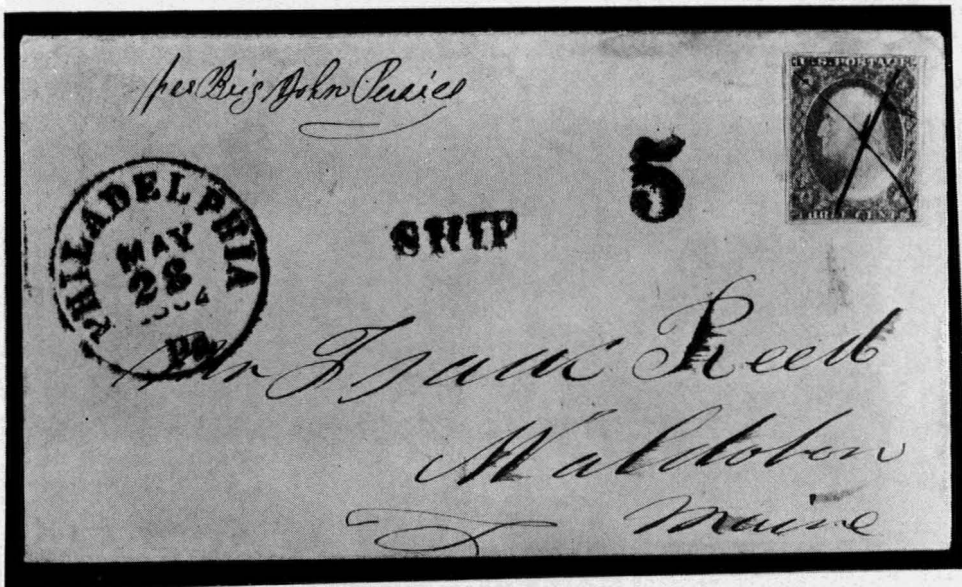 per Brig John
5
U.S. POSTAGE
THREE CENTS
SHIP
PHILADELPHIA
MAY
28
Pa.
Mr Isaac Reed
Waldoboro
Maine